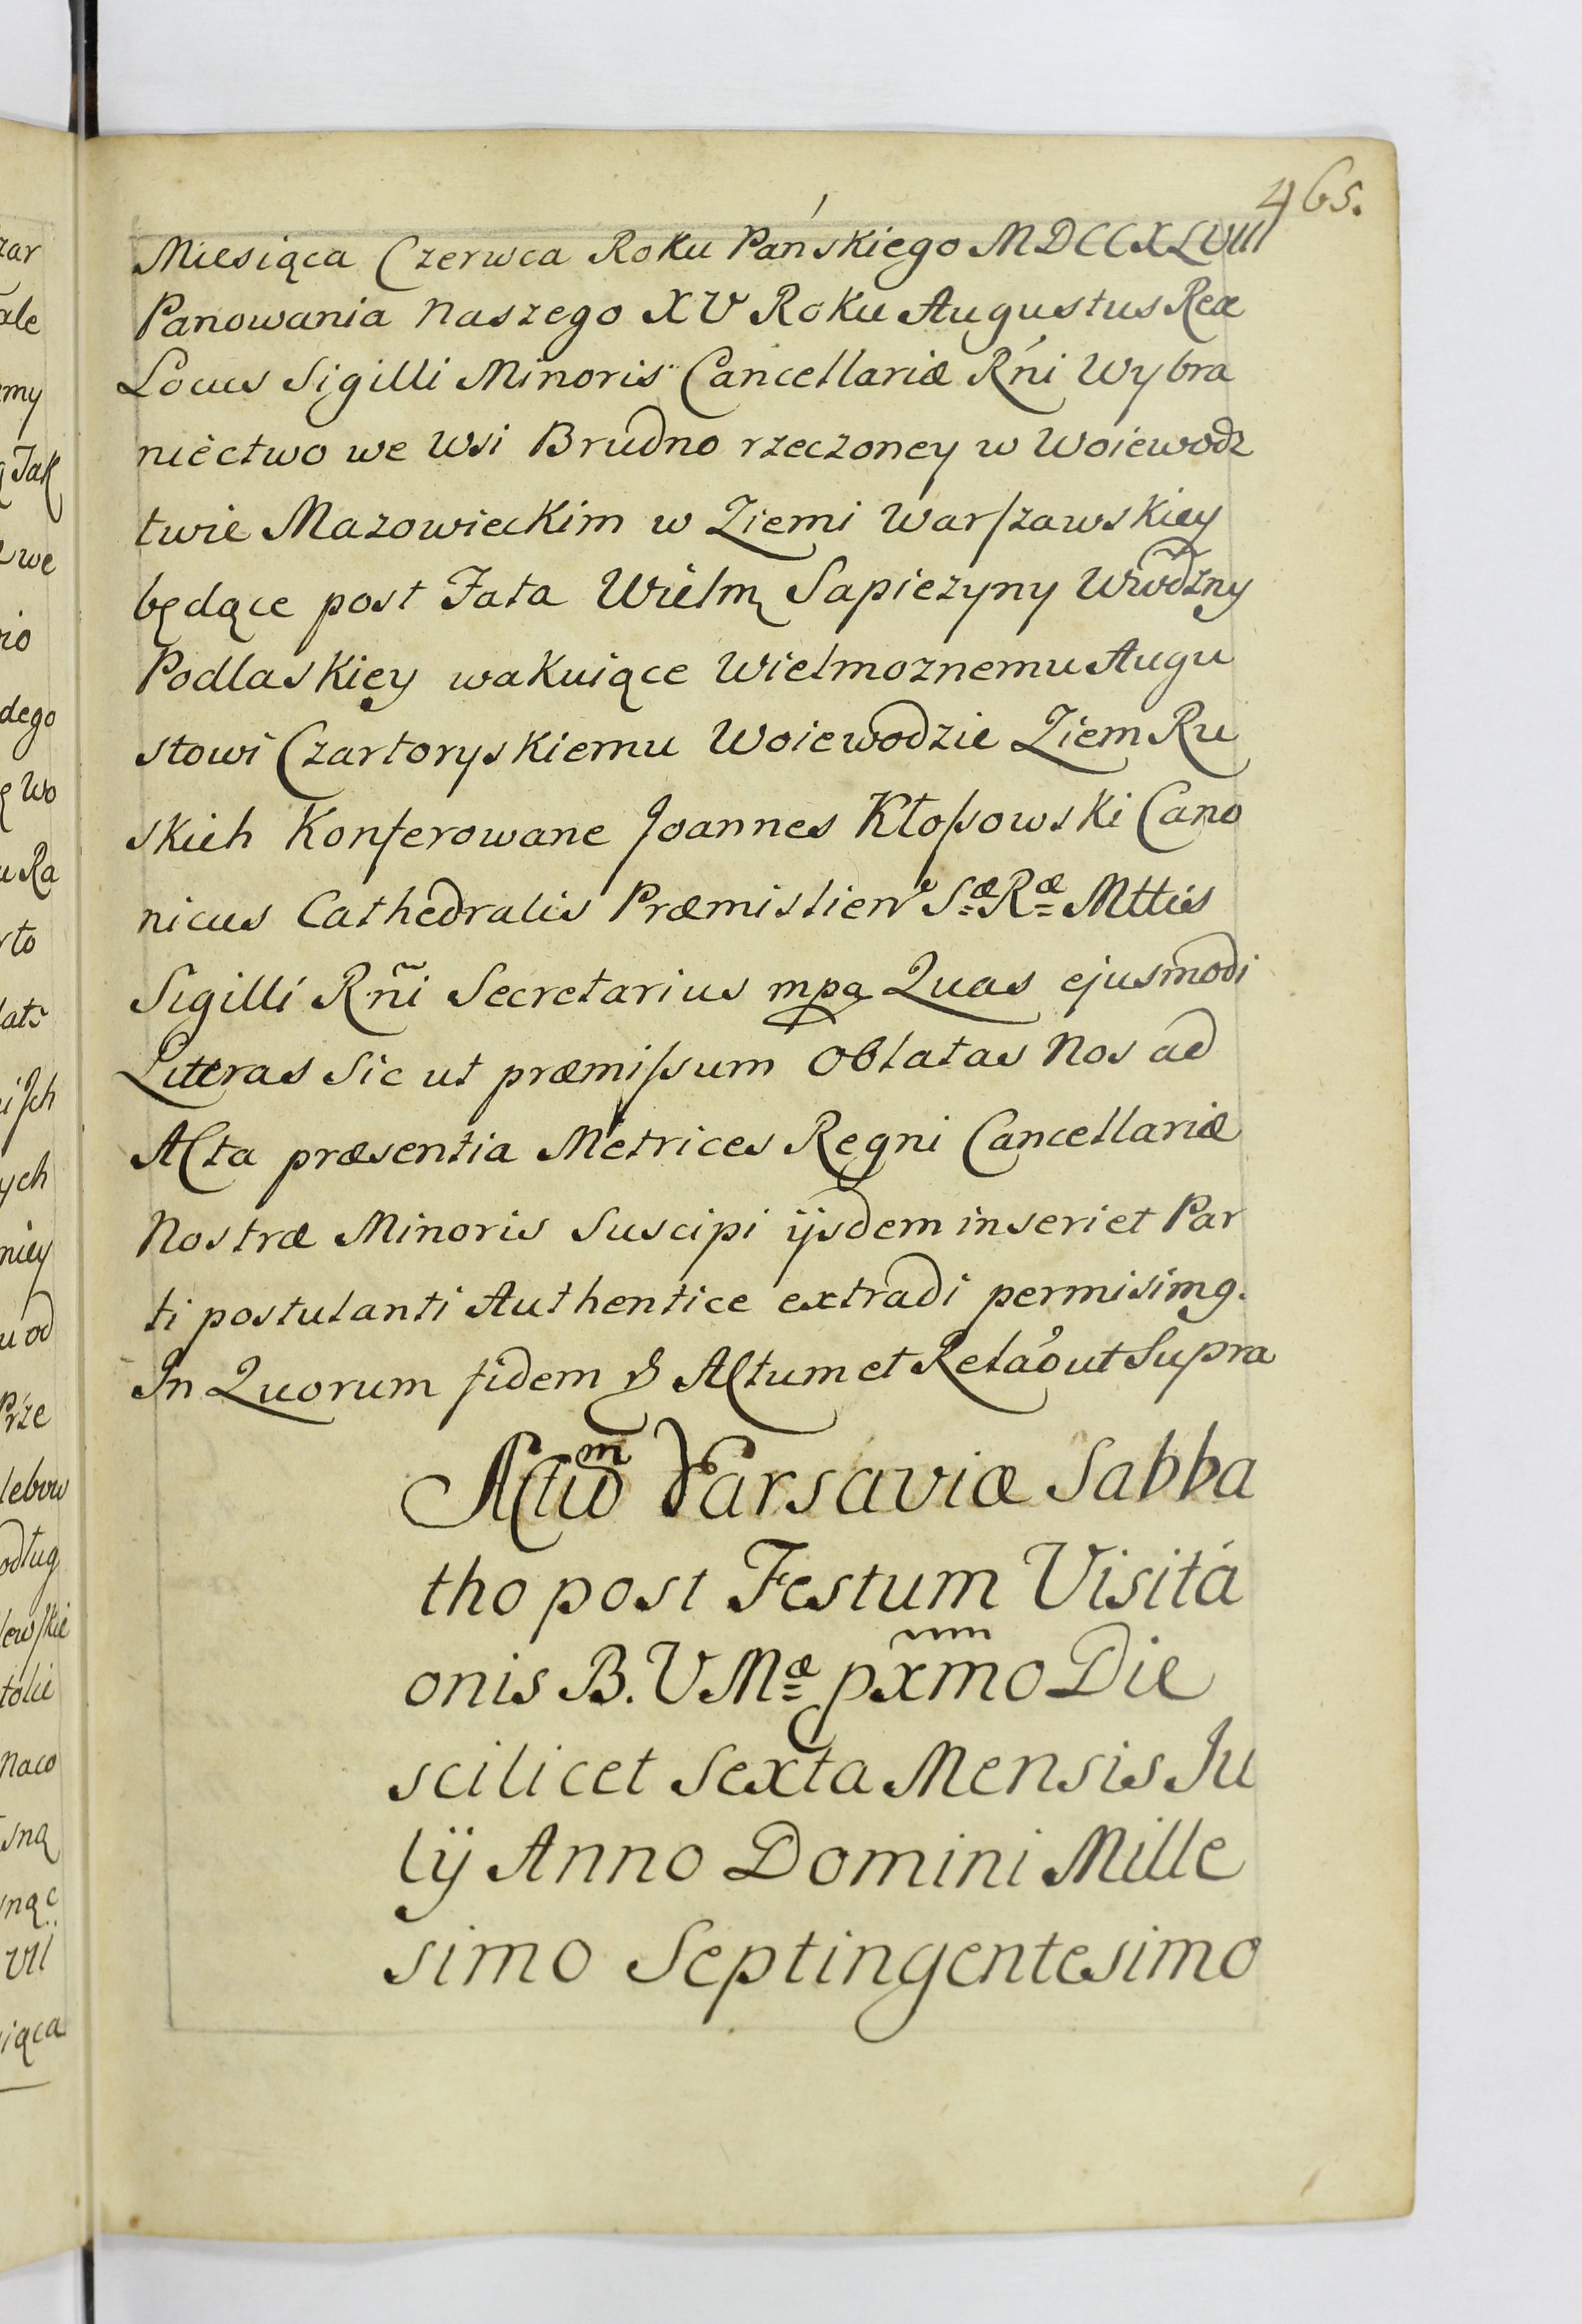 465.
Miesiąca Czerwca Roku Pańskiego MDCCXLVIII
Panowania naszego XV Roku Augustus Rex
Locus Sigilli Minoris Cancellariæ Rńi Wybra
niectwo we Wsi Brudno rzeczoney w Woiewodz
twie Mazowieckim w Ziemi Warszawskiey
będące post Fata Wielm Sapiezyny Wwodzny
Podlaskiey wakuiące Wielmoznemu Augu
stowi Czartoryskiemu Woiewodzie Ziem Ru
skich Konferowane Joannes Kłossowski Cano
nicus Cathedralis Præmislien Sæ Ræ Mttis
Sigilli Rñi Secretarius mpa Quas ejusmodi
Literas Sic ut præmissum Oblatas Nos ad
Acta præsentia Metrices Regni Cancellariæ
Nostræ Minoris Suscipi ijsdem inseri et Par
ti postulanti Authentice extradi permisimg.
In Quorum fidem & Actum et Relao ut Supra
Actum Varsaviæ Sabba
tho post Festum Visitá
onis B. V Mæ pxmo Die
scilicet Sexta Mensis Ju
lij Anno Domini Mille
simo Septingentesimo
zar
ale
emy
Jak
we
rio
dego
ę Wo
u Ra
rto
lats
isch
ych
niey
u od
Prze
lebow
odług
lewskie
tolie
naco
sną
nąc
VII
iąca